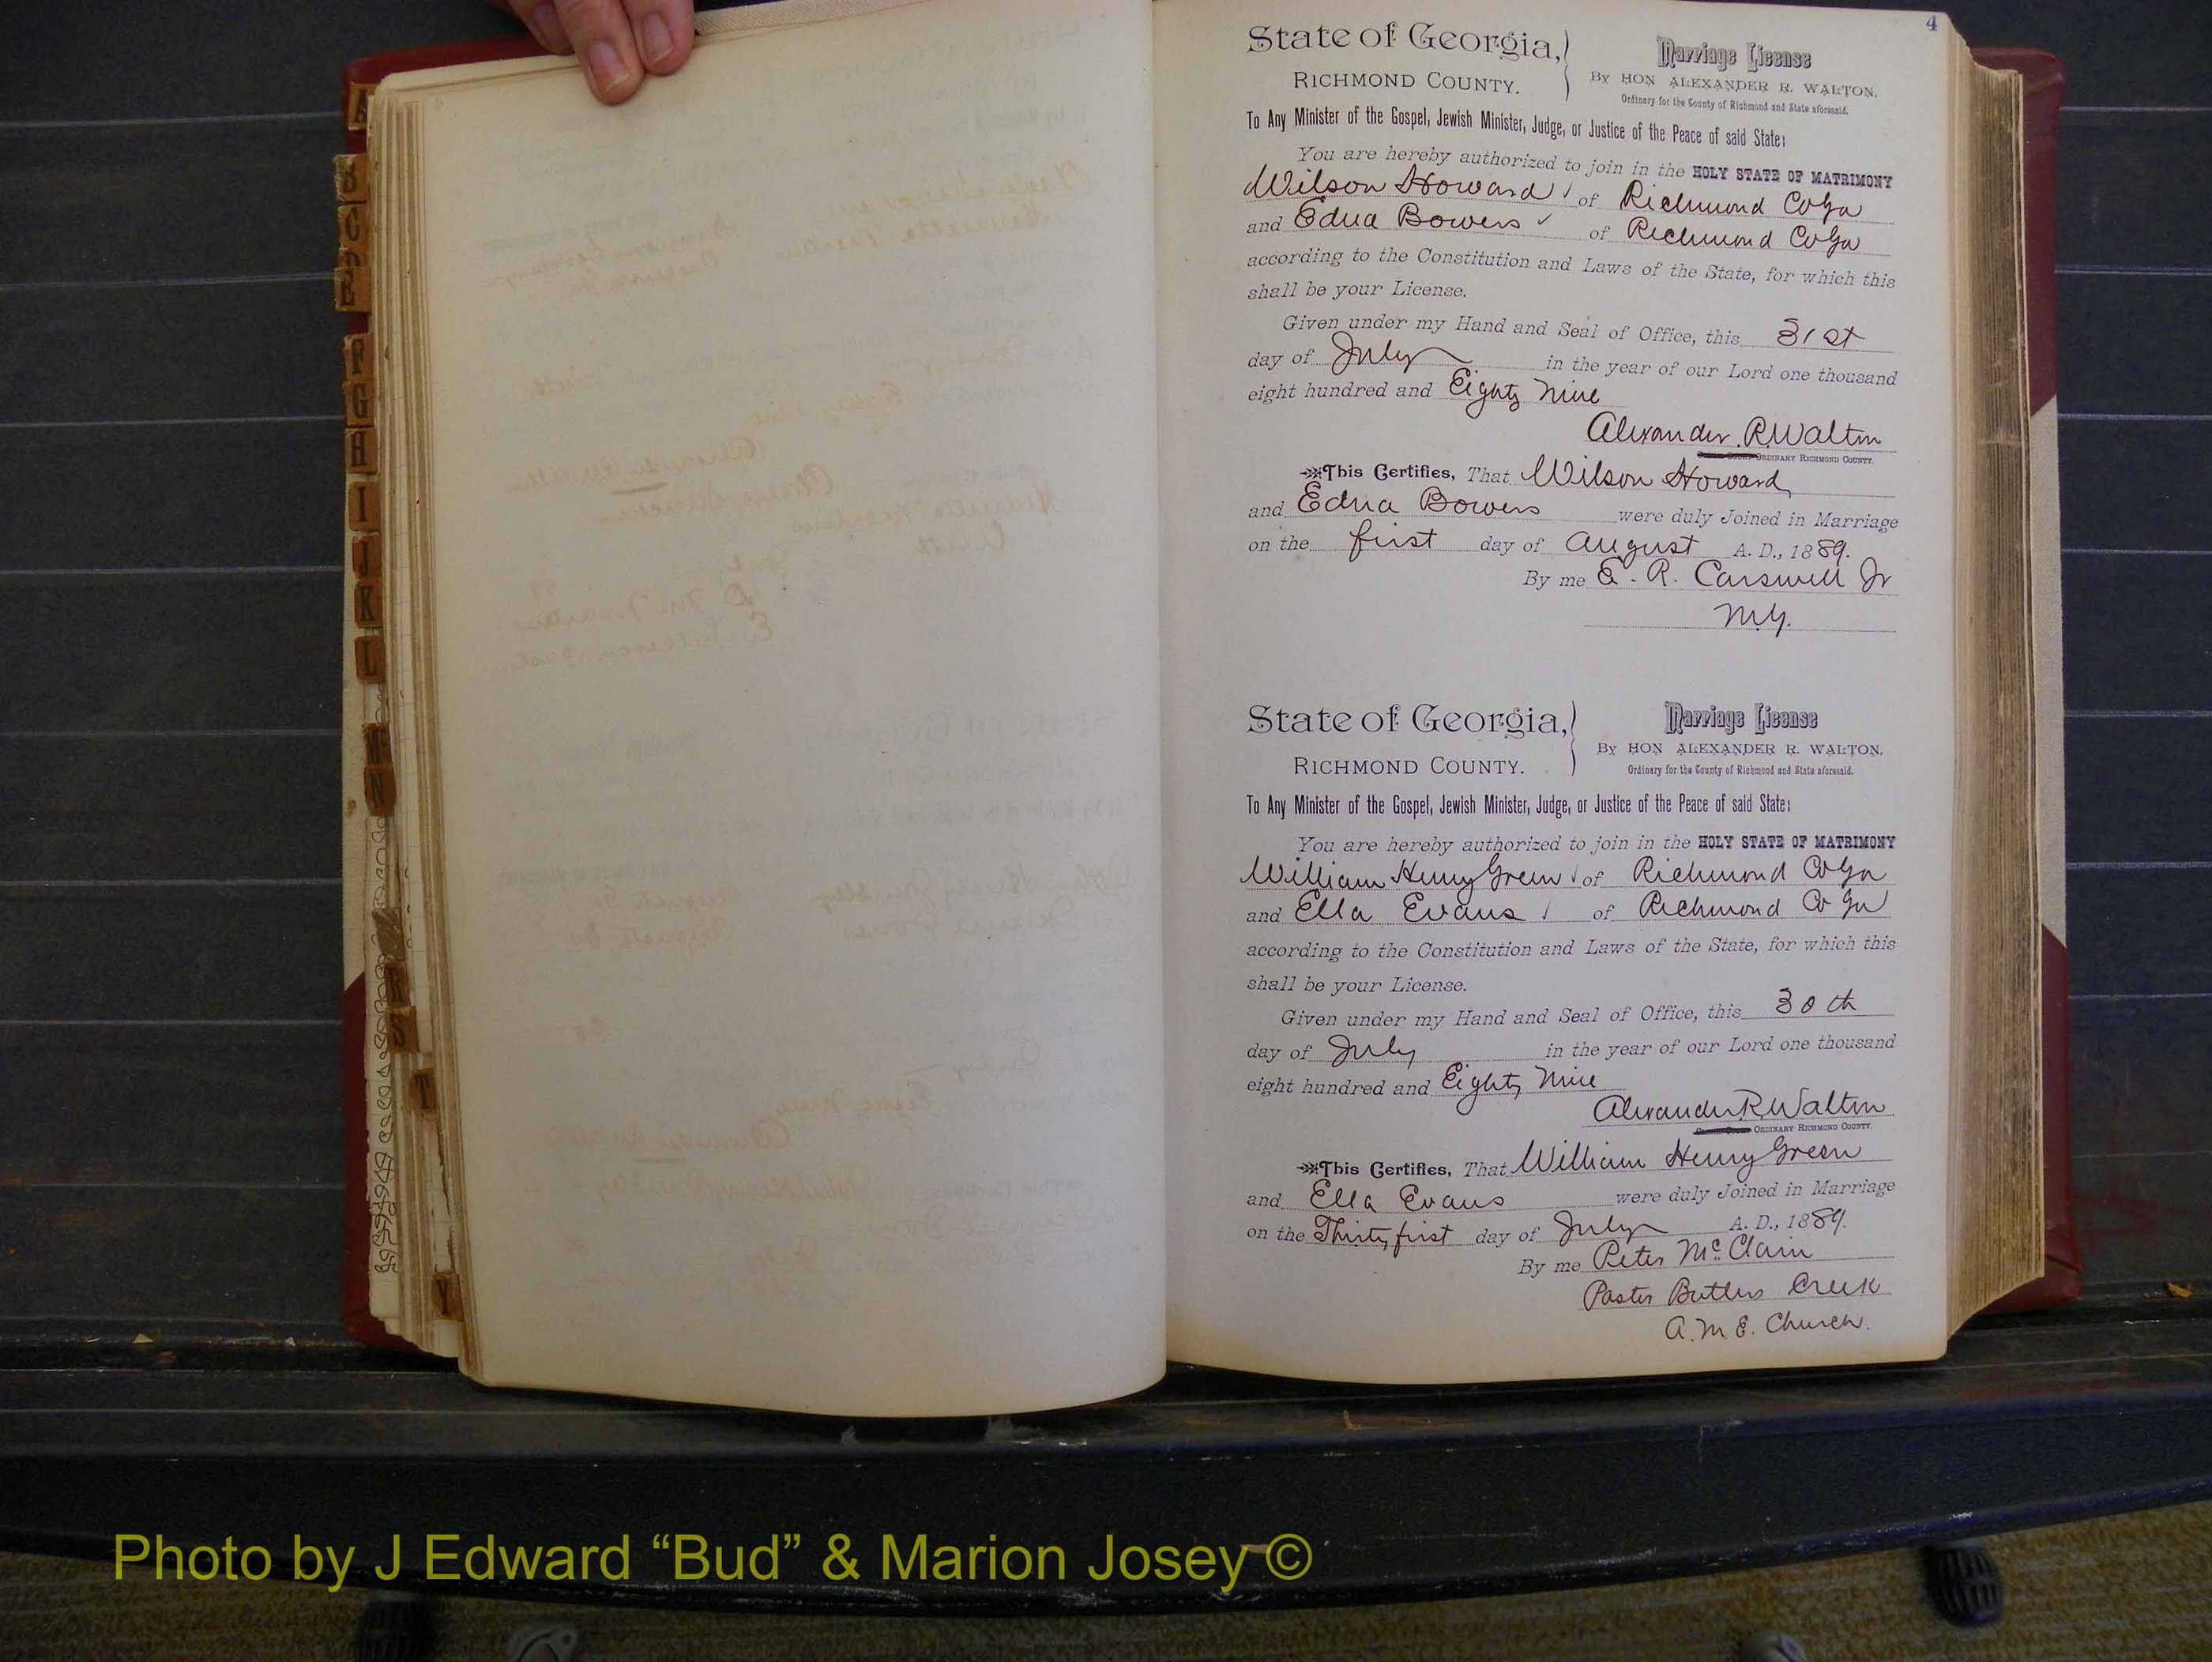 4
State of Georgia,
RICHMOND COUNTY.
Marriage License
By HON ALEXANDER R. WALTON,
Ordinary for the County of Richmond and State aforesaid.
To Any Minister of the Gospel, Jewish Minister, Judge, or Justice of the Peace of said State:
You are hereby authorized to join in the HOLY STATE OF MATRIMONY
Wilson Howard of Richmond Co Ga
and Edna Bowers of Richmond Co Ga
according to the Constitution and Laws of the State, for which this
shall be your License.
Given under my Hand and Seal of Office, this 31st
day of July in the year of our Lord one thousand
eight hundred and Eighty Nine
Alexander R Walton
ORDINARY RICHMOND COUNTY.
This Certifies, That Wilson Howard
and Edna Bowers were duly Joined in Marriage
on the first day of August A. D., 1889.
By me E. R. Carswell Jr
M.G.
State of Georgia,
RICHMOND COUNTY.
Marriage License
By HON ALEXANDER R. WALTON,
Ordinary for the County of Richmond and State aforesaid.
To Any Minister of the Gospel, Jewish Minister, Judge, or Justice of the Peace of said State:
You are hereby authorized to join in the HOLY STATE OF MATRIMONY
William Henry Green of Richmond Co Ga
and Ella Evans of Richmond Co Ga
according to the Constitution and Laws of the State, for which this
shall be your License.
Given under my Hand and Seal of Office, this 30th
day of July in the year of our Lord one thousand
eight hundred and Eighty Nine
Alexander R Walton
ORDINARY RICHMOND COUNTY.
This Certifies, That William Henry Green
and Ella Evans were duly Joined in Marriage
on the Thirty first day of July A. D., 1889.
By me Peter McClain
Pastor Butlers Creek
A.M.E. Church.
A
B
C
E
F
G
H
I
J
K
L
N
R
S
T
Y
Photo by J Edward “Bud” & Marion Josey ©